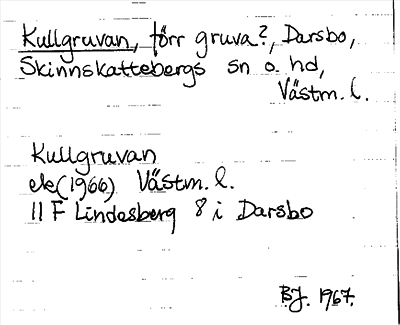 Kullgruvan, förr gruva?, Darsbo,
Skinnskattebergs sn o. hd,
Västm. l.
Kullgruvan
ek(1966) Västm. l.
11 F Lindesberg 8 i Darsbo
BJ. 1967.